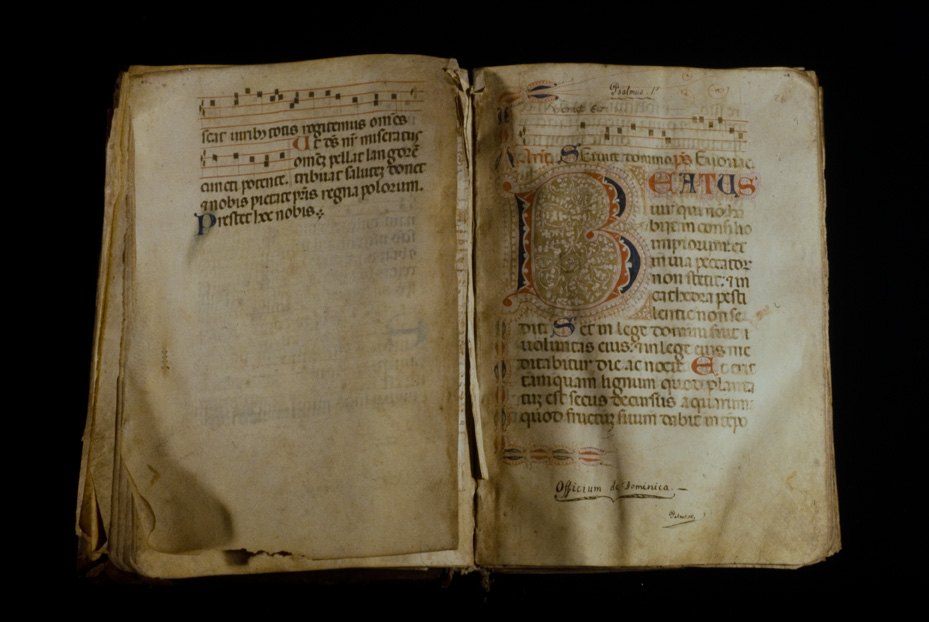 seat viribus totis rogitemus omnes
Ut ds nr miseratus
omnes pellat langorē
cuncti potens. tribuat salutē donet
⁊ nobis pietate pr̄is regna polorum.
Prestet hec nobis
Psalmus. 1.
Añ. Servite domino
BEATUS
vir qui no
biit in consilio
impiorum et
in via peccator
non stetit: ⁊ in
cathedra pesti
lentie non se
dit. Set in lege domini fuit
voluntas eius: ⁊ in lege eius me
ditabitur die ac nocte. Et erit
tamquam lignum quod planta
tuz est secus decursus aquarum:
quod fructuz suum dabit in tēpo
Officium de Dominica.